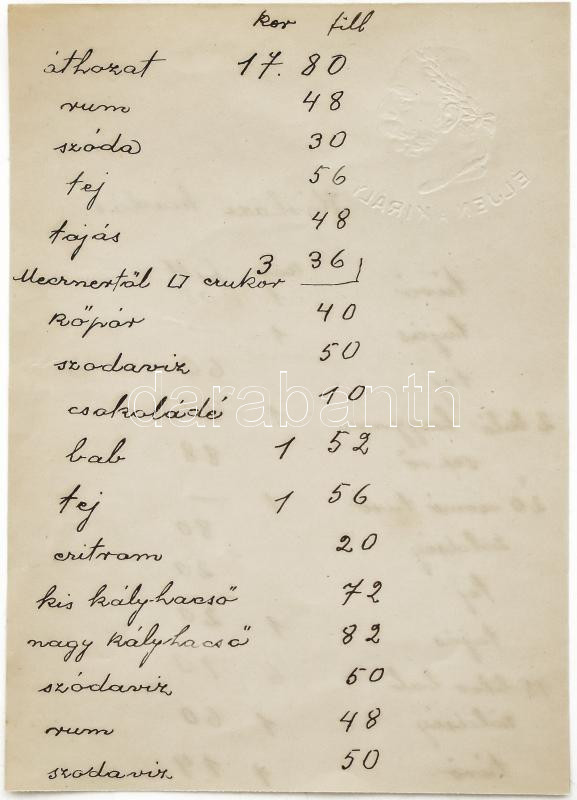 kor fill
áthozat 17. 80
rum 48
szóda 30
tej 56
tojás 48
3 36
cukor
kőpár 40
szodaviz 50
csokoládé 10
bab 1 52
tej 1 56
citrom 20
kis kályhacső 72
nagy kályhacső 82
szódaviz 50
rum 48
szodaviz 50
ELJEN A KIRALY
darabanth